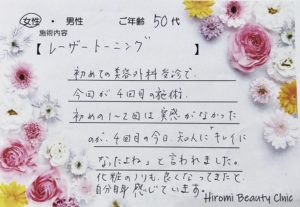 女性・男性 ご年齢 50代
施術内容
【レーザートーニング】
初めての美容外科受診で、
今回が4回目の施術。
初めの1~2回は実感がなかった
のが、4回目の今日、知人に「キレイに
なったよね」と言われました。
化粧のノリも良くなってきたと、
自分自身感じています。
Hiromi Beauty Clinic